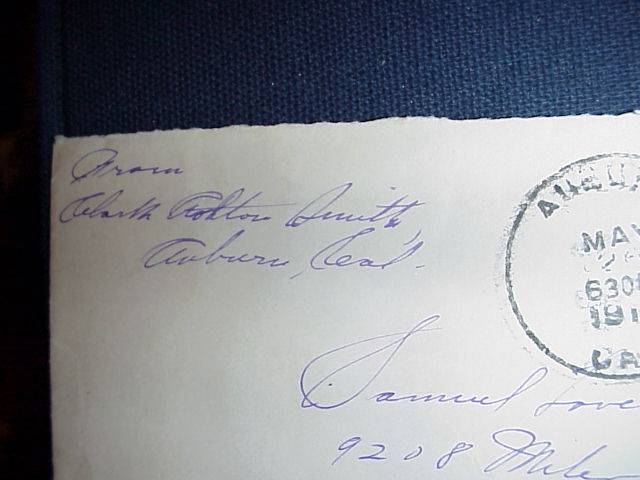 From
Clark Ashton Smith,
Auburn, Cal.
AUBU
MAY
630
191
CA
Samuel Love
9208